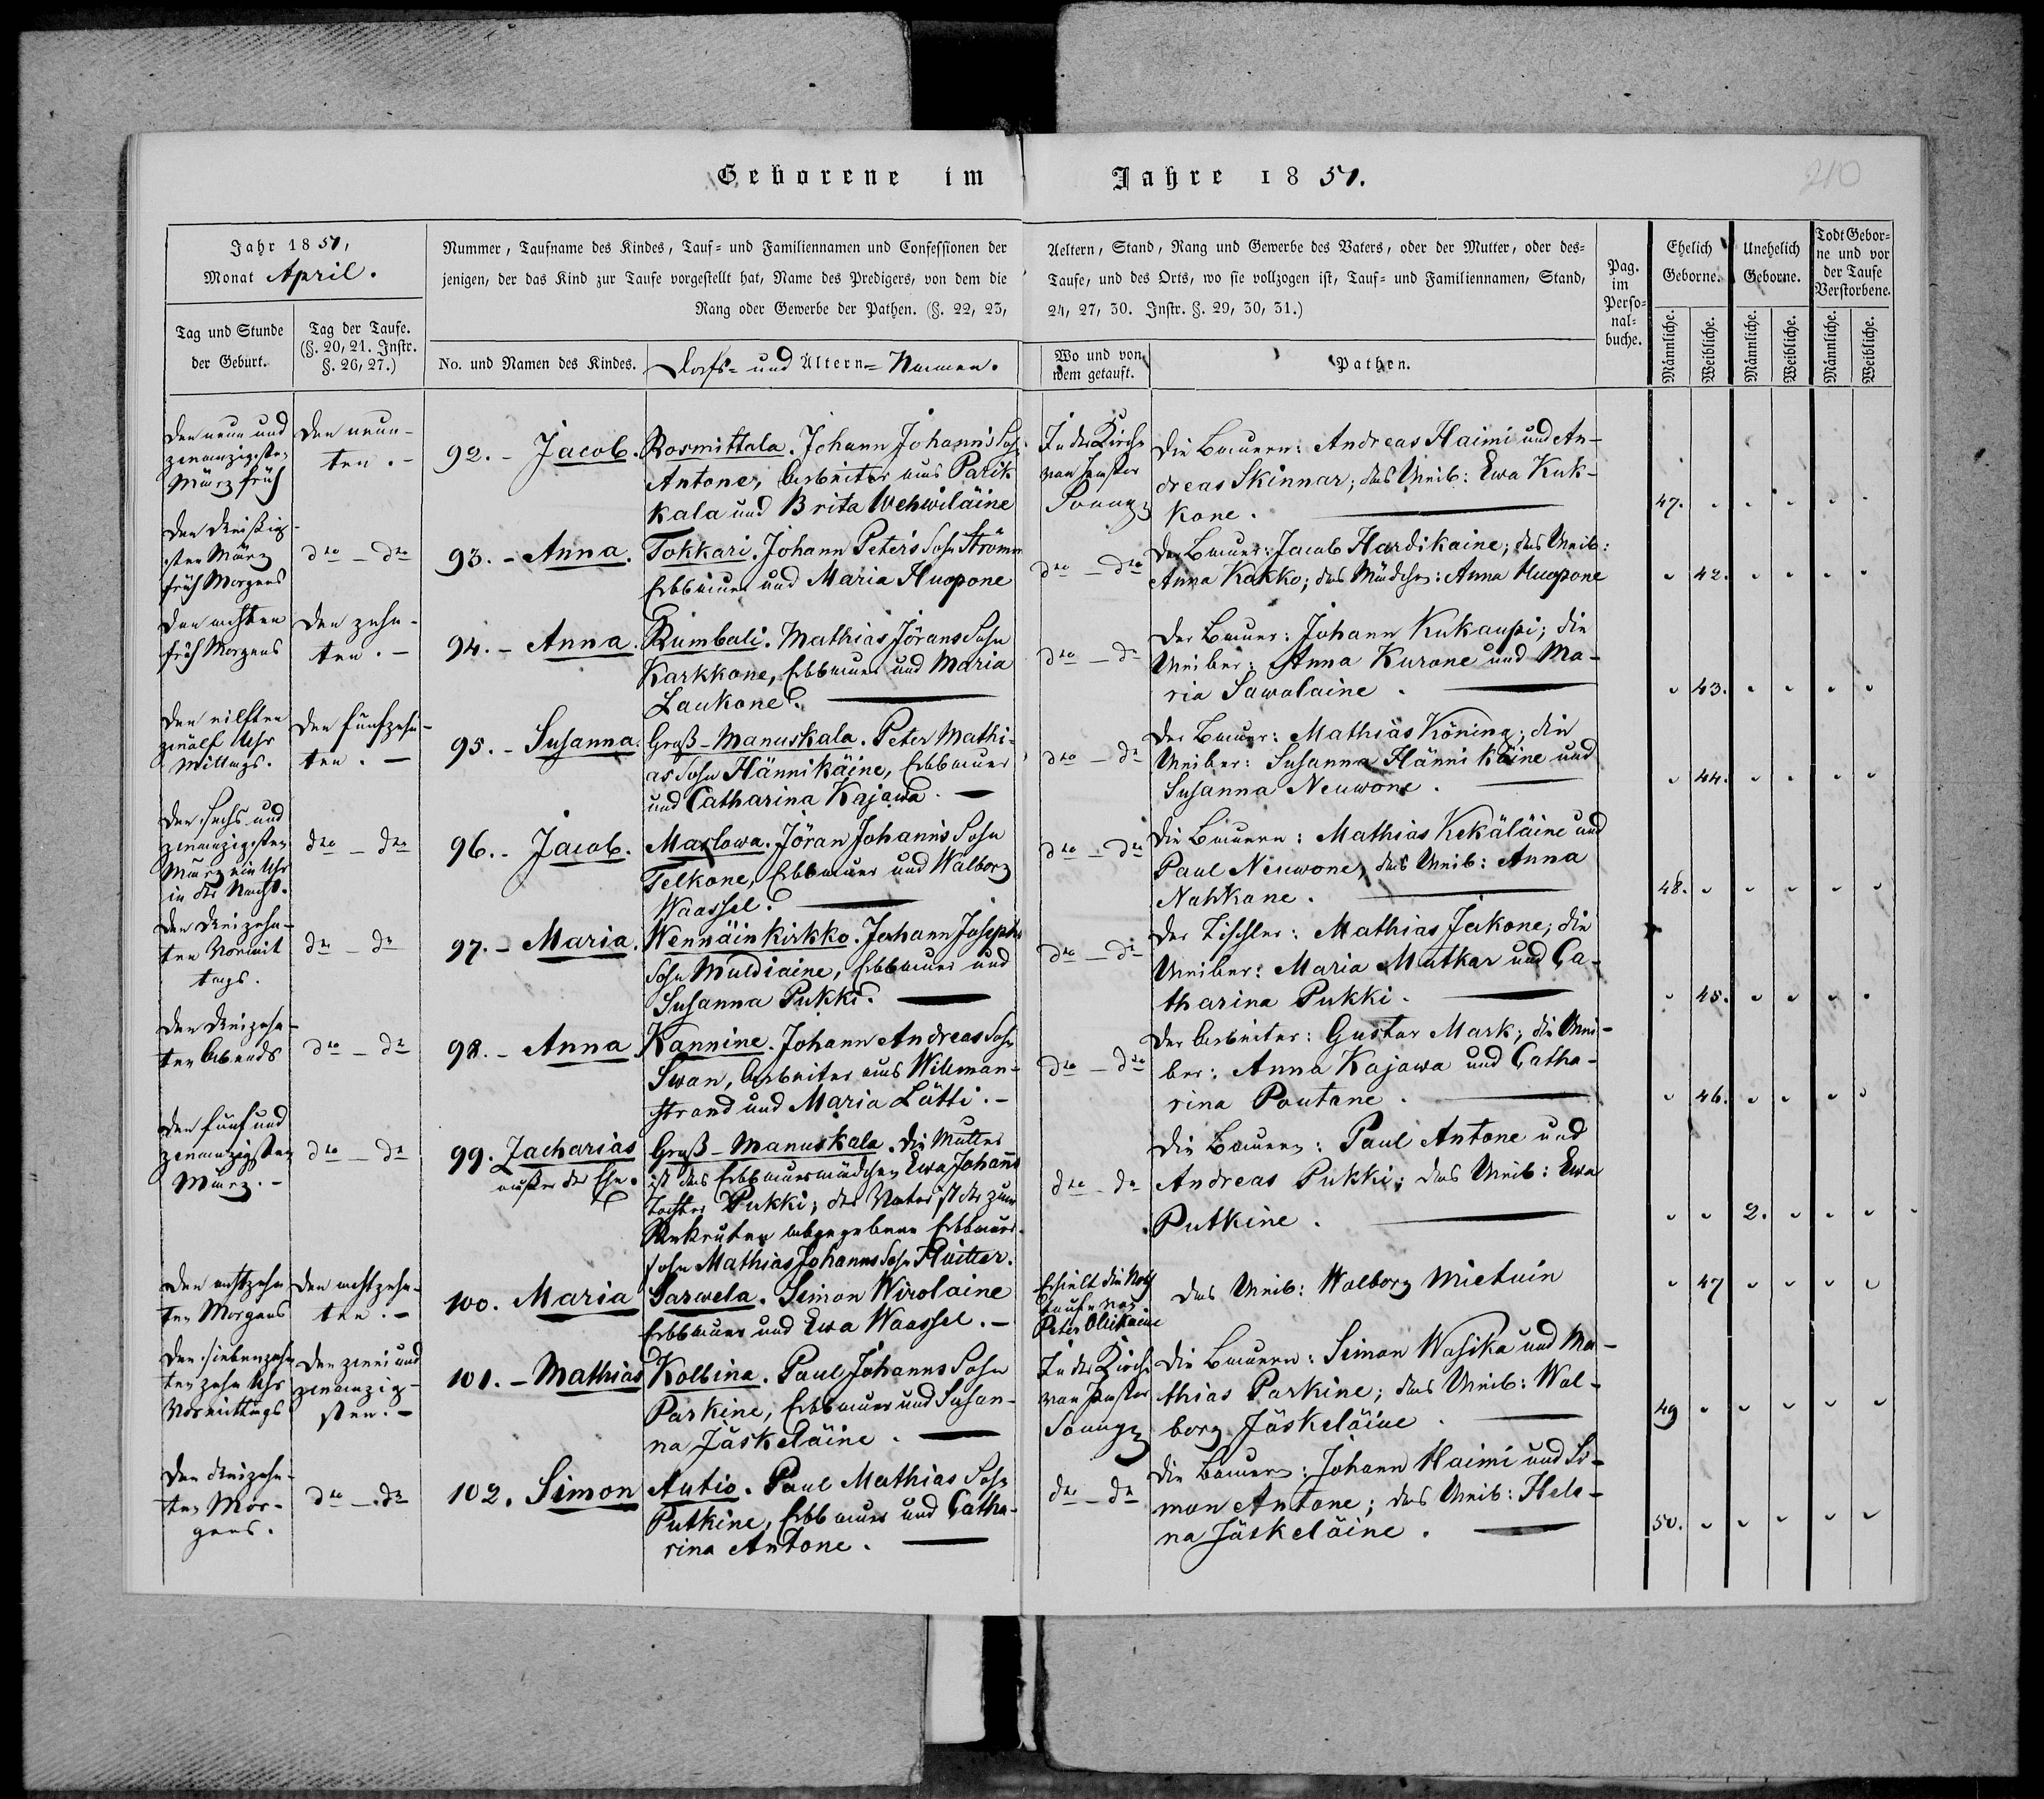 Geborene im Jahre 1851.
210
Jahr 1851,
Monat April.
Tag und Stunde
der Geburt.
Tag der Taufe.
(§. 20, 21. Instr.
§. 26, 27.)
Nummer, Taufname des Kindes, Tauf- und Familiennamen und Confessionen der
jenigen, der das Kind zur Taufe vorgestellt hat, Name des Predigers, von dem die
Rang oder Gewerbe der Pathen. (§. 22, 23,
No. und Namen des Kindes.
Dorfs- und Ältern-Namen.
Aeltern, Stand, Rang und Gewerbe des Vaters, oder der Mutter, oder des-
Taufe, und des Orts, wo sie vollzogen ist, Tauf- und Familiennamen, Stand,
24, 27, 30. Instr. §. 29, 30, 31.)
Wo und von
wem getauft.
Pathen.
Pag.
im
Perso-
nal-
buche.
Ehelich
Geborne.
Unehelich
Geborne.
Todt Gebor-
ne und vor
der Taufe
Verstorbene.
Männliche.
Weibliche.
Männliche.
Weibliche.
Männliche.
Weibliche.
Den neun und
zwanzigsten
März früh
Den neun-
ten. -
92. - Jacob.
Rosmittala. Johann Johann's Sohn
Antone, Arbeiter aus Parik
kala und Brita Wehwiläine
In der Kirche
von Pastor
Die Bauern: Andreas Haimi und An-
dreas Skinnar; das Weib: Ewa Kuk-
kone.
47.
Den dreißig-
sten März
früh Morgens
dto - dto
93. - Anna.
Tokkari. Johann Peter's Sohn Strömm
Erbbauer und Maria Huopone
dto - dto
Der Bauer: Jacob Hardikaine; das Weib:
Anna Kakko; das Mädchen: Anna Huopone
42.
Den achten
früh Morgens
Den zehn-
ten. -
94. - Anna.
Rumbali. Mathias Jörans Sohn
Karkkone, Erbbauer und Maria
Laukone.
dto - dto
Der Bauer: Johann Kukaupi; die
Weiber: Anna Kurone und Ma-
ria Sawolaine.
43.
Den eilften
zwölf Uhr
Mittags.
Den fünfzehn-
ten. -
95. - Susanna.
Groß-Manuskala. Peter Mathi-
as Sohn Hännikäine, Erbbauer
und Catharina Kajawa. -
dto - dto
Der Bauer: Mathias Köning; die
Weiber: Susanna Hännikäine und
Susanna Neuwone.
44.
Den sechs und
zwanzigsten
März ein Uhr
in der Nacht.
dto - dto
96. - Jacob.
Marlowa. Jöran Johann's Sohn
Telkone, Erbbauer und Walborg
Waassel.
dto - dto
Die Bauern: Mathias Kekäläine und
Paul Neuwone, das Weib: Anna
Nahkane.
48.
Den dreizehn-
ten Vormit
tags.
dto - dto
97. - Maria.
Wennäinkirkko. Johann Josephs
Sohn Muldiaine, Erbbauer und
Susanna Pukki.
dto - dto
Der Tischler: Mathias Jakone; die
Weiber: Maria Mutkar und Ca-
tharina Pukki.
45.
Den dreizehn-
ten Abends
dto - dto
98. - Anna
Kannine. Johann Andreas Sohn
Swan, Arbeiter aus Wilman-
strand und Maria Lätti. -
dto - dto
Der Arbeiter: Gustav Mark; die Wei-
ber: Anna Kajawa und Catha-
rina Poutane.
46.
Den fünf und
zwanzigsten
März. -
dto - dto
99. Zacharias
außer der Ehe.
Groß-Manuskala. Die Mutter
ist das Erbbauermädchen Ewa Johanns
Tochter Pukki; der Vater ist der zum
Rekruten abgegebene Erbbauer-
sohn Mathias Johanns Sohn Fluitter.
dto - dto
Die Bauern: Paul Antone und
Andreas Pukki; das Weib: Ewa
Putkine.
2.
Den achtzehn
ten Morgens
Den achtzehn-
ten. -
100. Maria
Sarwela. Simon Wirolaine
Erbbauer und Ewa Waassel. -
Erhielt die Noth
taufe von
Peter Ollikaine
Das Weib: Walborg Mietuin
47
Den siebenzehn
ten zehn Uhr
Vormittags
Den zwei und
zwanzig-
sten. -
101. - Mathias
Kolbina. Paul Johanns Sohn
Parkine, Erbbauer und Susan-
na Jäskeläine.
In der Kirche
von Pastor
Die Bauern: Simon Wasika und Ma-
thias Parkine; das Weib: Wal-
borg Jäskeläine.
49
Den dreizehn-
ten Mor-
gens.
dto - dto
102. Simon
Autio. Paul Mathias Sohn
Putkine, Erbbauer und Catha-
rina Antone.
dto - dto
Die Bauern: Johann Haimi und Si-
mon Antone; das Weib: Hele-
na Jäskeläine.
50.